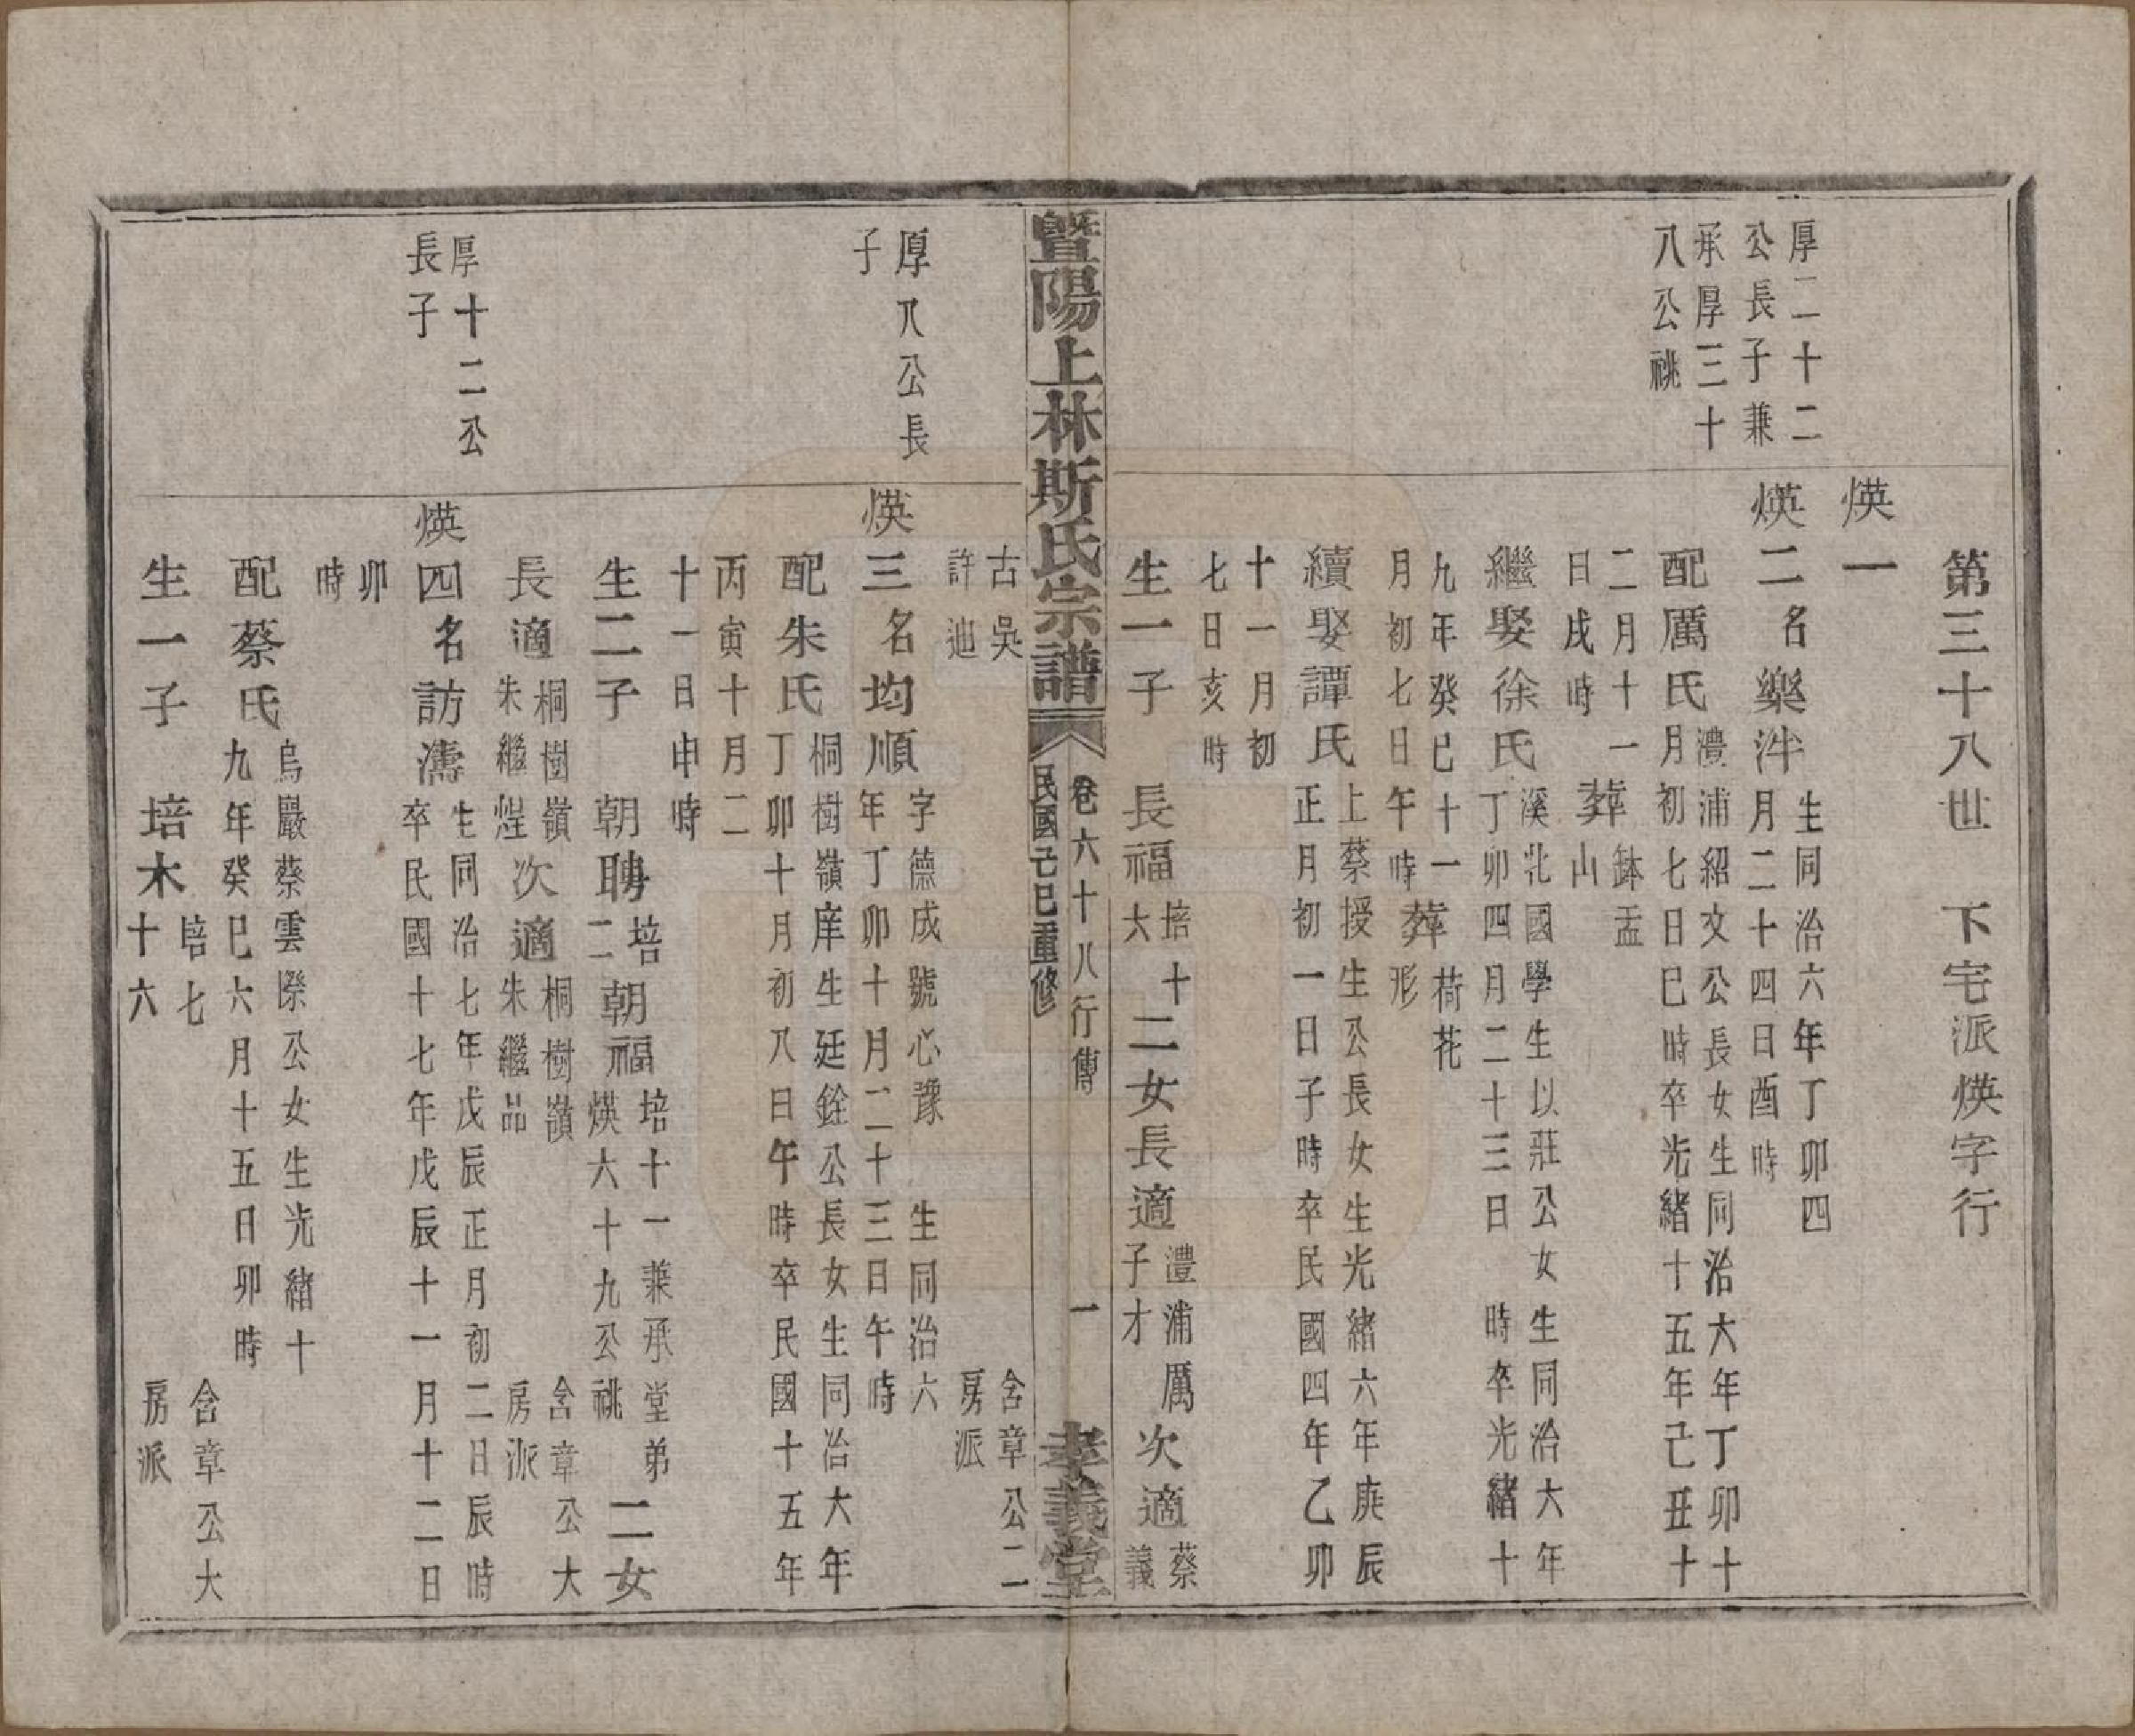 第三十八世　下宅派煐字行
煐一
厚二十二
公長子兼
承厚三十
八公祧
煐二名樂泮
生同治六年丁卯四
月二十四日酉時
配厲氏
澧浦紹文公長女生同治六年丁卯十
月初七日巳時卒光緒十五年己丑十
二月十一
日戌時
葬
鉢盂
山
繼娶徐氏
溪北國學生以莊公女生同治六年
丁卯四月二十三日　時卒光緒十
九年癸巳十一
月初七日午時
葬
荷花
形
續娶譚氏
上蔡授生公長女生光緒六年庚辰
正月初一日子時卒民國四年乙卯
十一月初
七日亥時
生一子　長福
培十
大
二女長適
澧浦厲
子才
次適
蔡
義
暨陽上林斯氏宗譜
卷六十八行傳　一
民國己巳重修
孝義堂
古吳
許迪
含章公二
房派
厚八公長
子
煐三名均順
字德成號心豫　生同治六
年丁卯十月二十三日午時
配朱氏
桐樹嶺庠生廷銓公長女生同治六年
丁卯十月初八日午時卒民國十五年
丙寅十月二
十一日申時
生二子　朝聘
培
二
朝福
培十一兼承堂弟
煐六十九公祧
二女
長適
桐樹嶺
朱繼煋
次適
桐樹嶺
朱繼品
含章公大
房派
厚十二公
長子
煐四名訪濤
生同治七年戊辰正月初二日辰時
卒民國十七年戊辰十一月十二日
卯
時
配蔡氏
烏巖蔡雲際公女生光緒十
九年癸巳六月十五日卯時
生一子　培木
培七
十六
含章公大
房派